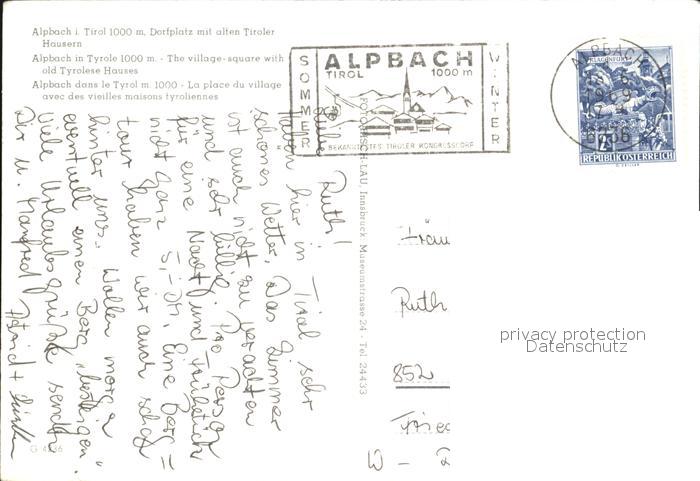 Alpbach i. Tirol 1000 m. Dorfplatz mit alten Tiroler
Häusern
Alpbach in Tyrole 1000 m. - The village-square with
old Tyrolese Hauses
Alpbach dans le Tyrol m. 1000 - La place du village
avec des vieilles maisons tyroliennes
SOMMER
ALPBACH
TIROL 1000 m
BEKANNTESTES TIROLER KONGRESSDORF
WINTER
ALPBACH
6236
KLAGENFURT
REPUBLIK ÖSTERREICH
Liebe Ruth!
Haben hier in Tirol sehr
schönes Wetter. Das Zimmer
ist auch nicht zu verachten
und sehr billig. Pro Person
für eine Nacht und Frühstück
nicht ganz 5,- DM. Eine Berg=
tour haben wir auch schon
hinter uns. Wollen morgen
eventuell einen Berg "besteigen".
Viele Urlaubsgrüße senden
Dir u. Manfred Astrid +
Innsbruck, Museumstrasse 24 - Tel. 24433
Fräu
Ruth
852
W -
privacy protection
Datenschutz